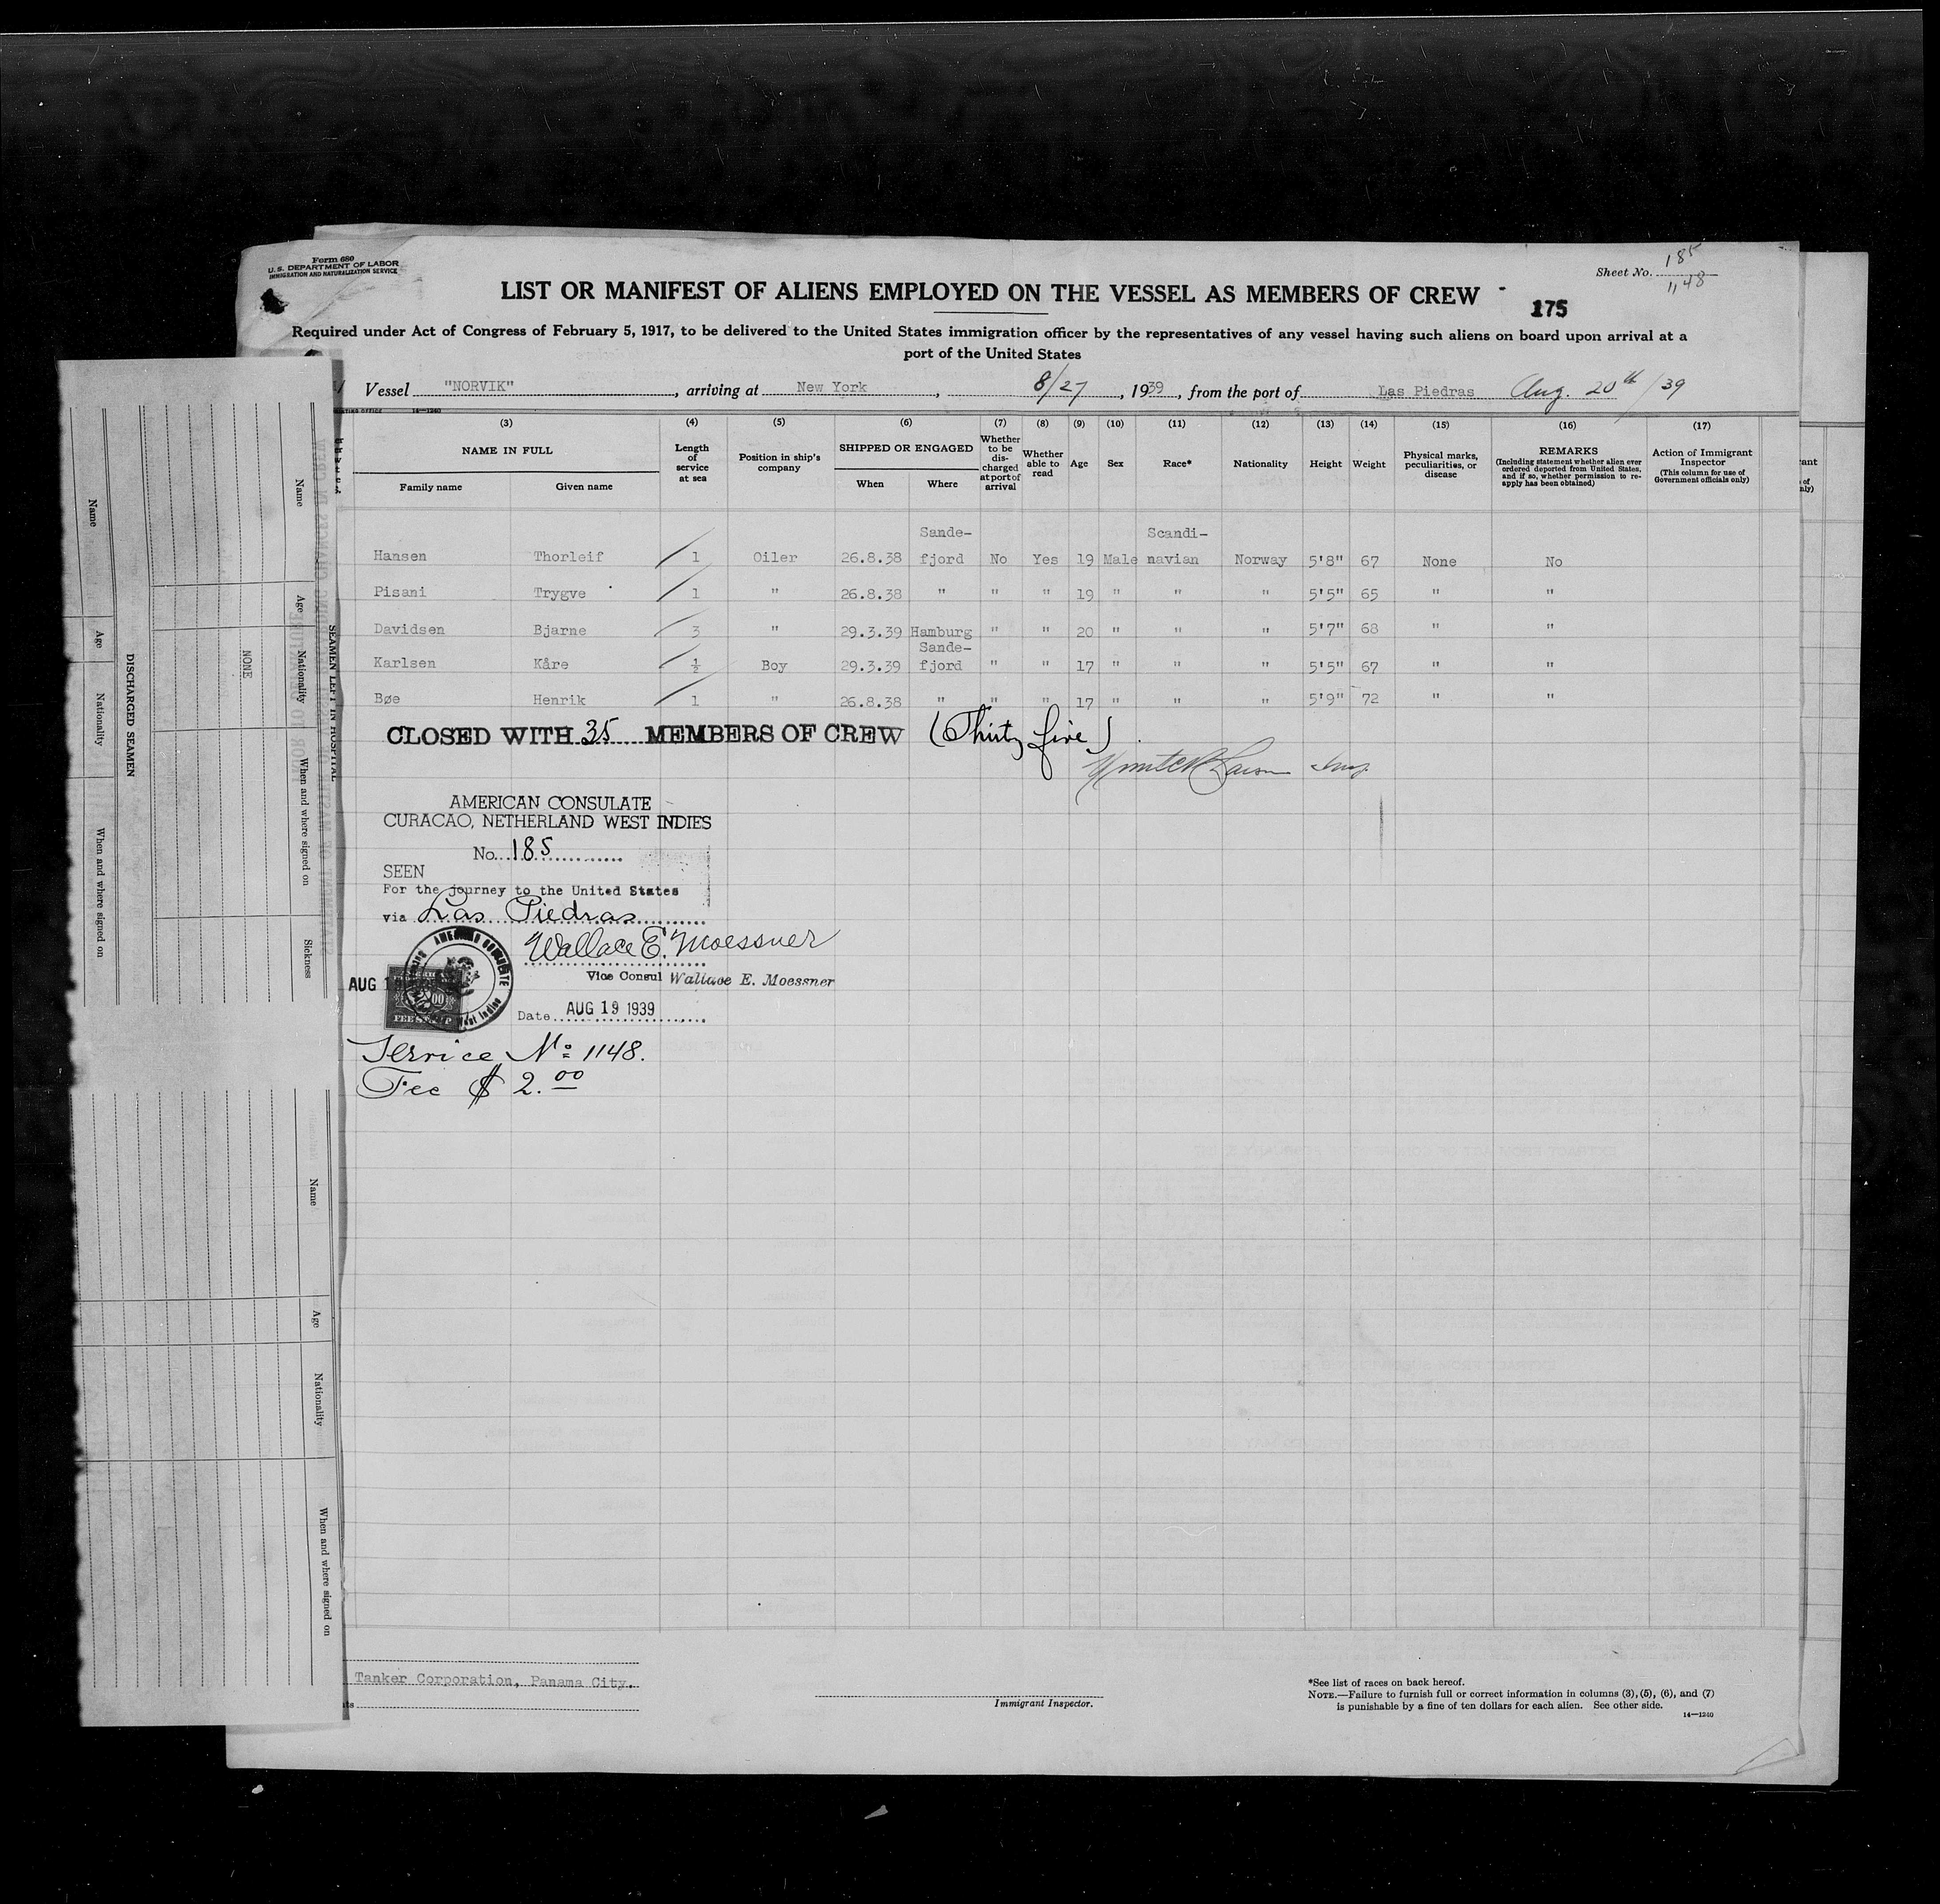 Form 680
U. S. DEPARTMENT OF LABOR
IMMIGRATION AND NATURALIZATION SERVICE
Sheet No. 185
1148
LIST OR MANIFEST OF ALIENS EMPLOYED ON THE VESSEL AS MEMBERS OF CREW
175
Required under Act of Congress of February 5, 1917, to be delivered to the United States immigration officer by the representatives of any vessel having such aliens on board upon arrival at a
port of the United States
Vessel "NORVIK", arriving at New York, 8/27, 1939, from the port of Las Piedras Aug. 20th/39
14—1240
(3) (4) (5) (6) (7) (8) (9) (10) (11) (12) (13) (14) (15) (16) (17)
NAME IN FULL
Family name Given name
Length of service at sea
Position in ship's company
SHIPPED OR ENGAGED
When Where
Whether to be discharged at port of arrival
Whether able to read
Age
Sex
Race*
Nationality
Height
Weight
Physical marks, peculiarities, or disease
REMARKS
(Including statement whether alien ever ordered deported from United States, and if so, whether permission to reapply has been obtained)
Action of Immigrant Inspector
(This column for use of Government officials only)
Sande- Scandi-
Hansen Thorleif 1 Oiler 26.8.38 fjord No Yes 19 Male navian Norway 5'8" 67 None No
Pisani Trygve 1 " 26.8.38 " " " 19 " " " 5'5" 65 " "
Davidsen Bjarne 3 " 29.3.39 Hamburg " " 20 " " " 5'7" 68 " "
Sande-
Karlsen Kåre ½ Boy 29.3.39 fjord " " 17 " " " 5'5" 67 " "
Bøe Henrik 1 " 26.8.38 " " " 17 " " " 5'9" 72 " "
CLOSED WITH 35 MEMBERS OF CREW (Thirty five)
AMERICAN CONSULATE
CURACAO, NETHERLAND WEST INDIES
No. 185
SEEN
For the journey to the United States
via Las Piedras
Wallace E. Moessner
Vice Consul Wallace E. Moessner
AUG 1
FEE STAMP
Date AUG 19 1939
Service No 1148.
Fee $ 2.00
Tanker Corporation, Panama City.
Immigrant Inspector.
*See list of races on back hereof.
NOTE.—Failure to furnish full or correct information in columns (3), (5), (6), and (7)
is punishable by a fine of ten dollars for each alien. See other side.
14—1240
SEAMEN LEFT IN HOSPITAL
Name Age Nationality When and where signed on Sickness
NONE
DISCHARGED SEAMEN
Name Age Nationality When and where signed on
Name Age Nationality When and where signed on